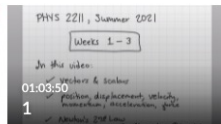 PHYS 2211, Summer 2021
Weeks 1-3
In this video:
✓ vectors & scalars
✓ position, displacement, velocity,
momentum, acceleration, force
✓ Newton's 2nd Law
01:03:50
1